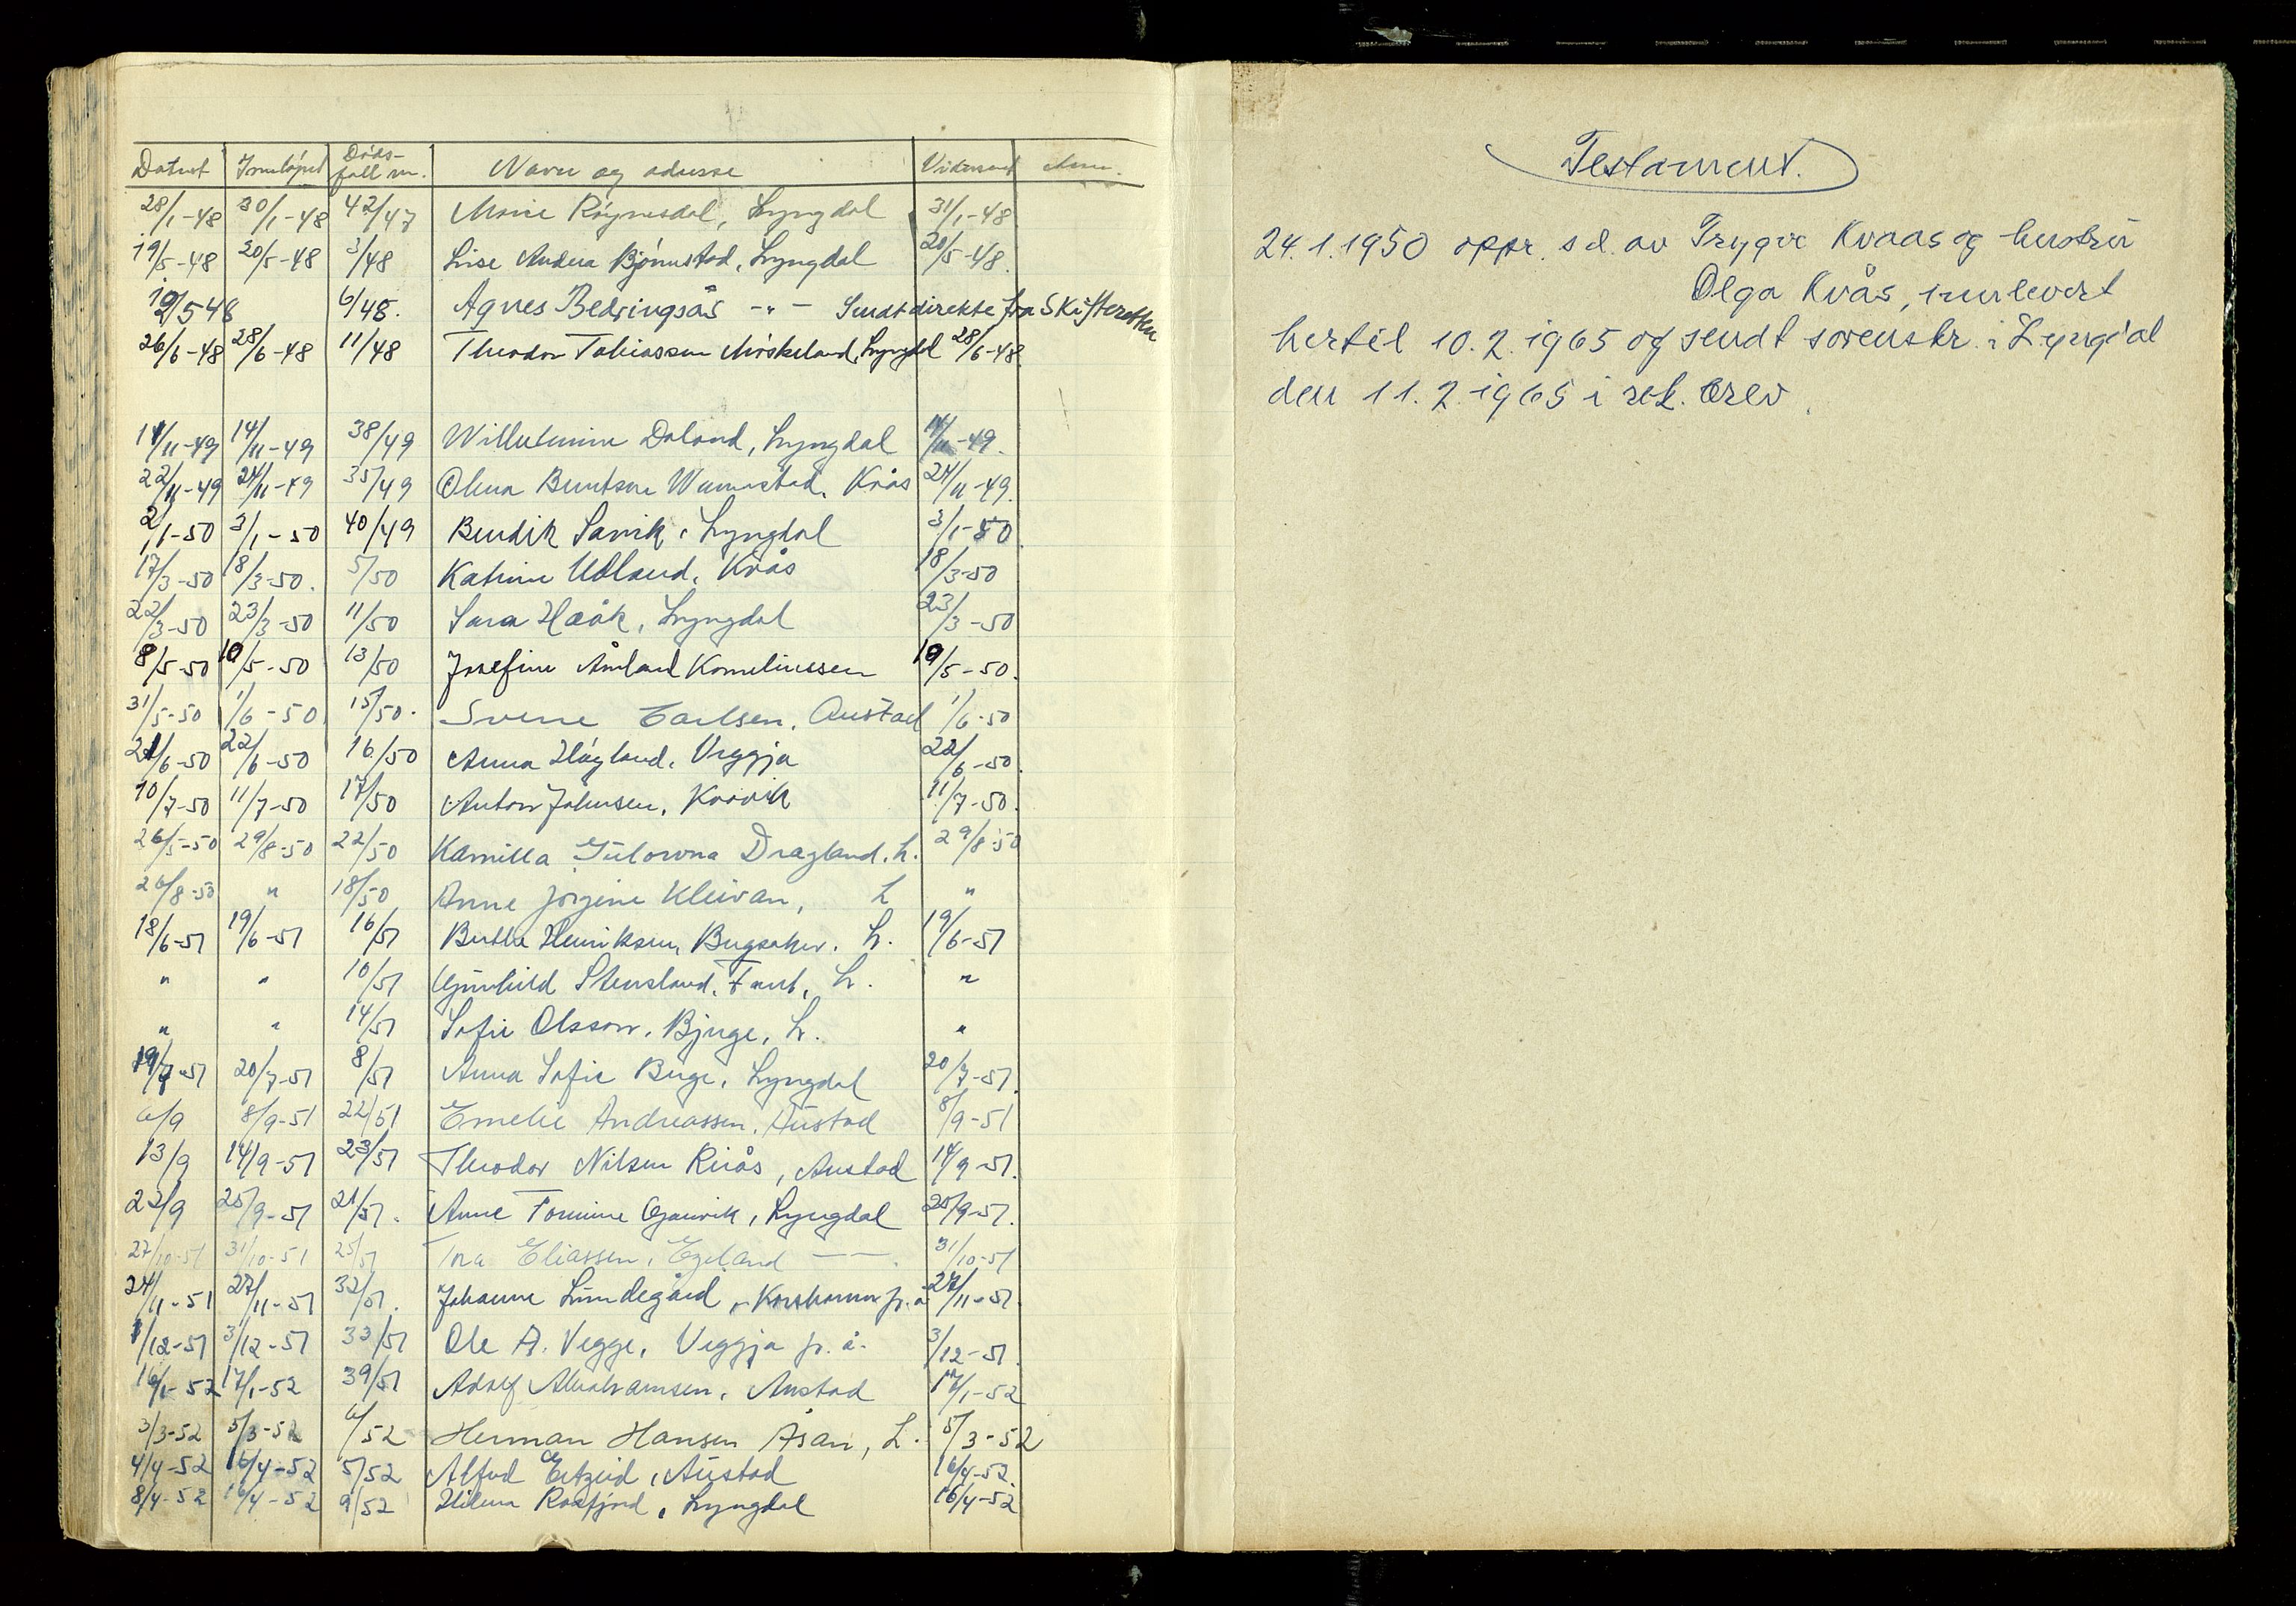 Datert Innløpet Dødsfall nr. Navn og adresse Vidresendt Anm.
28/1-48 30/1-48 42/47 Marie Røynesdal, Lyngdal 31/1-48
19/5-48 20/5-48 3/48 Lise Andrea Bjørnestad, Lyngdal 20/5-48.
19/5 48 6/48. Agnes Bedringsås -"- Sendt direkte fra Skifteretten
26/6-48 28/6-48 11/48 Theodor Tobiassen Møskeland, Lyngdal 28/6-48.
11/11-49 14/11-49 38/49 Willumine Daland, Lyngdal 14/11-49.
22/11-49 24/11-49 35/49 Olena Berntsen Vamestad, Kvås 24/11-49.
2/1-50 3/1-50 40/49 Bendik Sanik, Lyngdal 3/1-50.
17/3-50 18/3-50. 5/50 Katrine Udland, Kvås 18/3-50
22/3-50 23/3-50 11/50 Sara Haåk, Lyngdal 23/3-50
8/5-50 10/5-50 13/50 Josefine Åmland Korneliussen 10/5-50.
31/5-50 1/6-50 15/50. Sverre Carlsen, Austad 1/6-50
21/6-50 22/6-50 16/50 Anna Høyland, Veggja 22/6-50.
10/7-50 11/7-50 17/50 Anton Johnsen, Kvavik 11/7-50.
26/5-50 29/8-50 22/50 Kamilla Gulowna Dragland, L. 29/8-50
26/8-50 " 18/50 Anne Jørgine Kleivan, L "
18/6-51 19/6-51 16/51 Berthe Henriksen, Bugsaker. L. 19/6-51
" " 10/51 Gunhild Stensland, Tent, L. "
" " 14/51 Sofie Olsson, Bjuge, L. "
19/7-51 20/7-51 8/51 Anna Sofie Berge, Lyngdal 20/7-51.
6/9 8/9-51 22/51 Emelie Andreassen, Austad 8/9-51
13/9 14/9-51 23/51 Theodor Nilsen Revås, Austad 14/9-51.
22/9 25/9-51 21/51. Anne Tomine Gjervik, Lyngdal 25/9-51.
27/10-51 31/10-51 25/51 Tea Eliassen, Egeland — — 31/10-51
24/11-51 27/11-51 32/51. Johanne Lundegård, Korshamn p.å. 27/11-51
1/12-51 3/12-51 33/51 Ole A. Vegge, Veggja p.å. 3/12-51.
16/1-52 17/1-52 39/51 Adolf Abrahamsen, Austad 17/1-52
3/3-52 5/3-52 6/52 Herman Hansen Åsan, L. 5/3-52
4/4-52 16/4-52 5/52 Alfred Eitzeid, Austad 16/4-52.
8/4-52 16/4-52 9/52 Hilma Rosfjord, Lyngdal 16/4-52
Testament.
24.1.1950 oppr. s.d. av Trygve Kvaas og hustru
Olga Kvås, innlevert
hertil 10.2.1965 og sendt sorenskr. i Lyngdal
den 11.2.1965 i rek. brev.